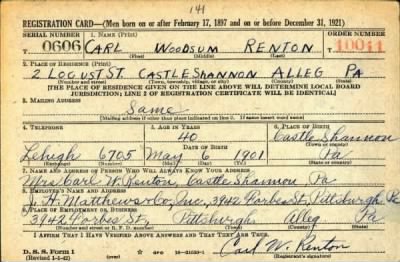 141
REGISTRATION CARD—(Men born on or after February 17, 1897 and on or before December 31, 1921)
SERIAL NUMBER 1. NAME (Print) ORDER NUMBER
0606 CARL WOODSUM RENTON 10011
(First) (Middle) (Last)
2. PLACE OF RESIDENCE (Print)
2 LOCUST ST. CASTLE SHANNON ALLEG PA
(Number and street) (Town, township, village, or city) (County) (State)
[THE PLACE OF RESIDENCE GIVEN ON THE LINE ABOVE WILL DETERMINE LOCAL BOARD
JURISDICTION; LINE 2 OF REGISTRATION CERTIFICATE WILL BE IDENTICAL]
3. MAILING ADDRESS
Same
[Mailing address if other than place indicated on line 2. If same insert word same]
4. TELEPHONE 5. AGE IN YEARS 6. PLACE OF BIRTH
40 Castle Shannon
DATE OF BIRTH (Town or county)
Lehigh 6705 May 6 1901 Pa
(Exchange) (Number) (Mo.) (Day) (Yr.) (State or country)
7. NAME AND ADDRESS OF PERSON WHO WILL ALWAYS KNOW YOUR ADDRESS
Mrs Carl W. Renton, Castle Shannon Pa
8. EMPLOYER'S NAME AND ADDRESS
J. H. Matthews & Co, Inc, 3942 Forbes St, Pittsburgh Pa
9. PLACE OF EMPLOYMENT OR BUSINESS
3942 Forbes St, Pittsburgh Alleg Pa
(Number and street or R. F. D. number) (Town) (County) (State)
I AFFIRM THAT I HAVE VERIFIED ABOVE ANSWERS AND THAT THEY ARE TRUE.
D. S. S. Form 1
(Revised 1-1-42) (over)
Carl W. Renton
(Registrant's signature)